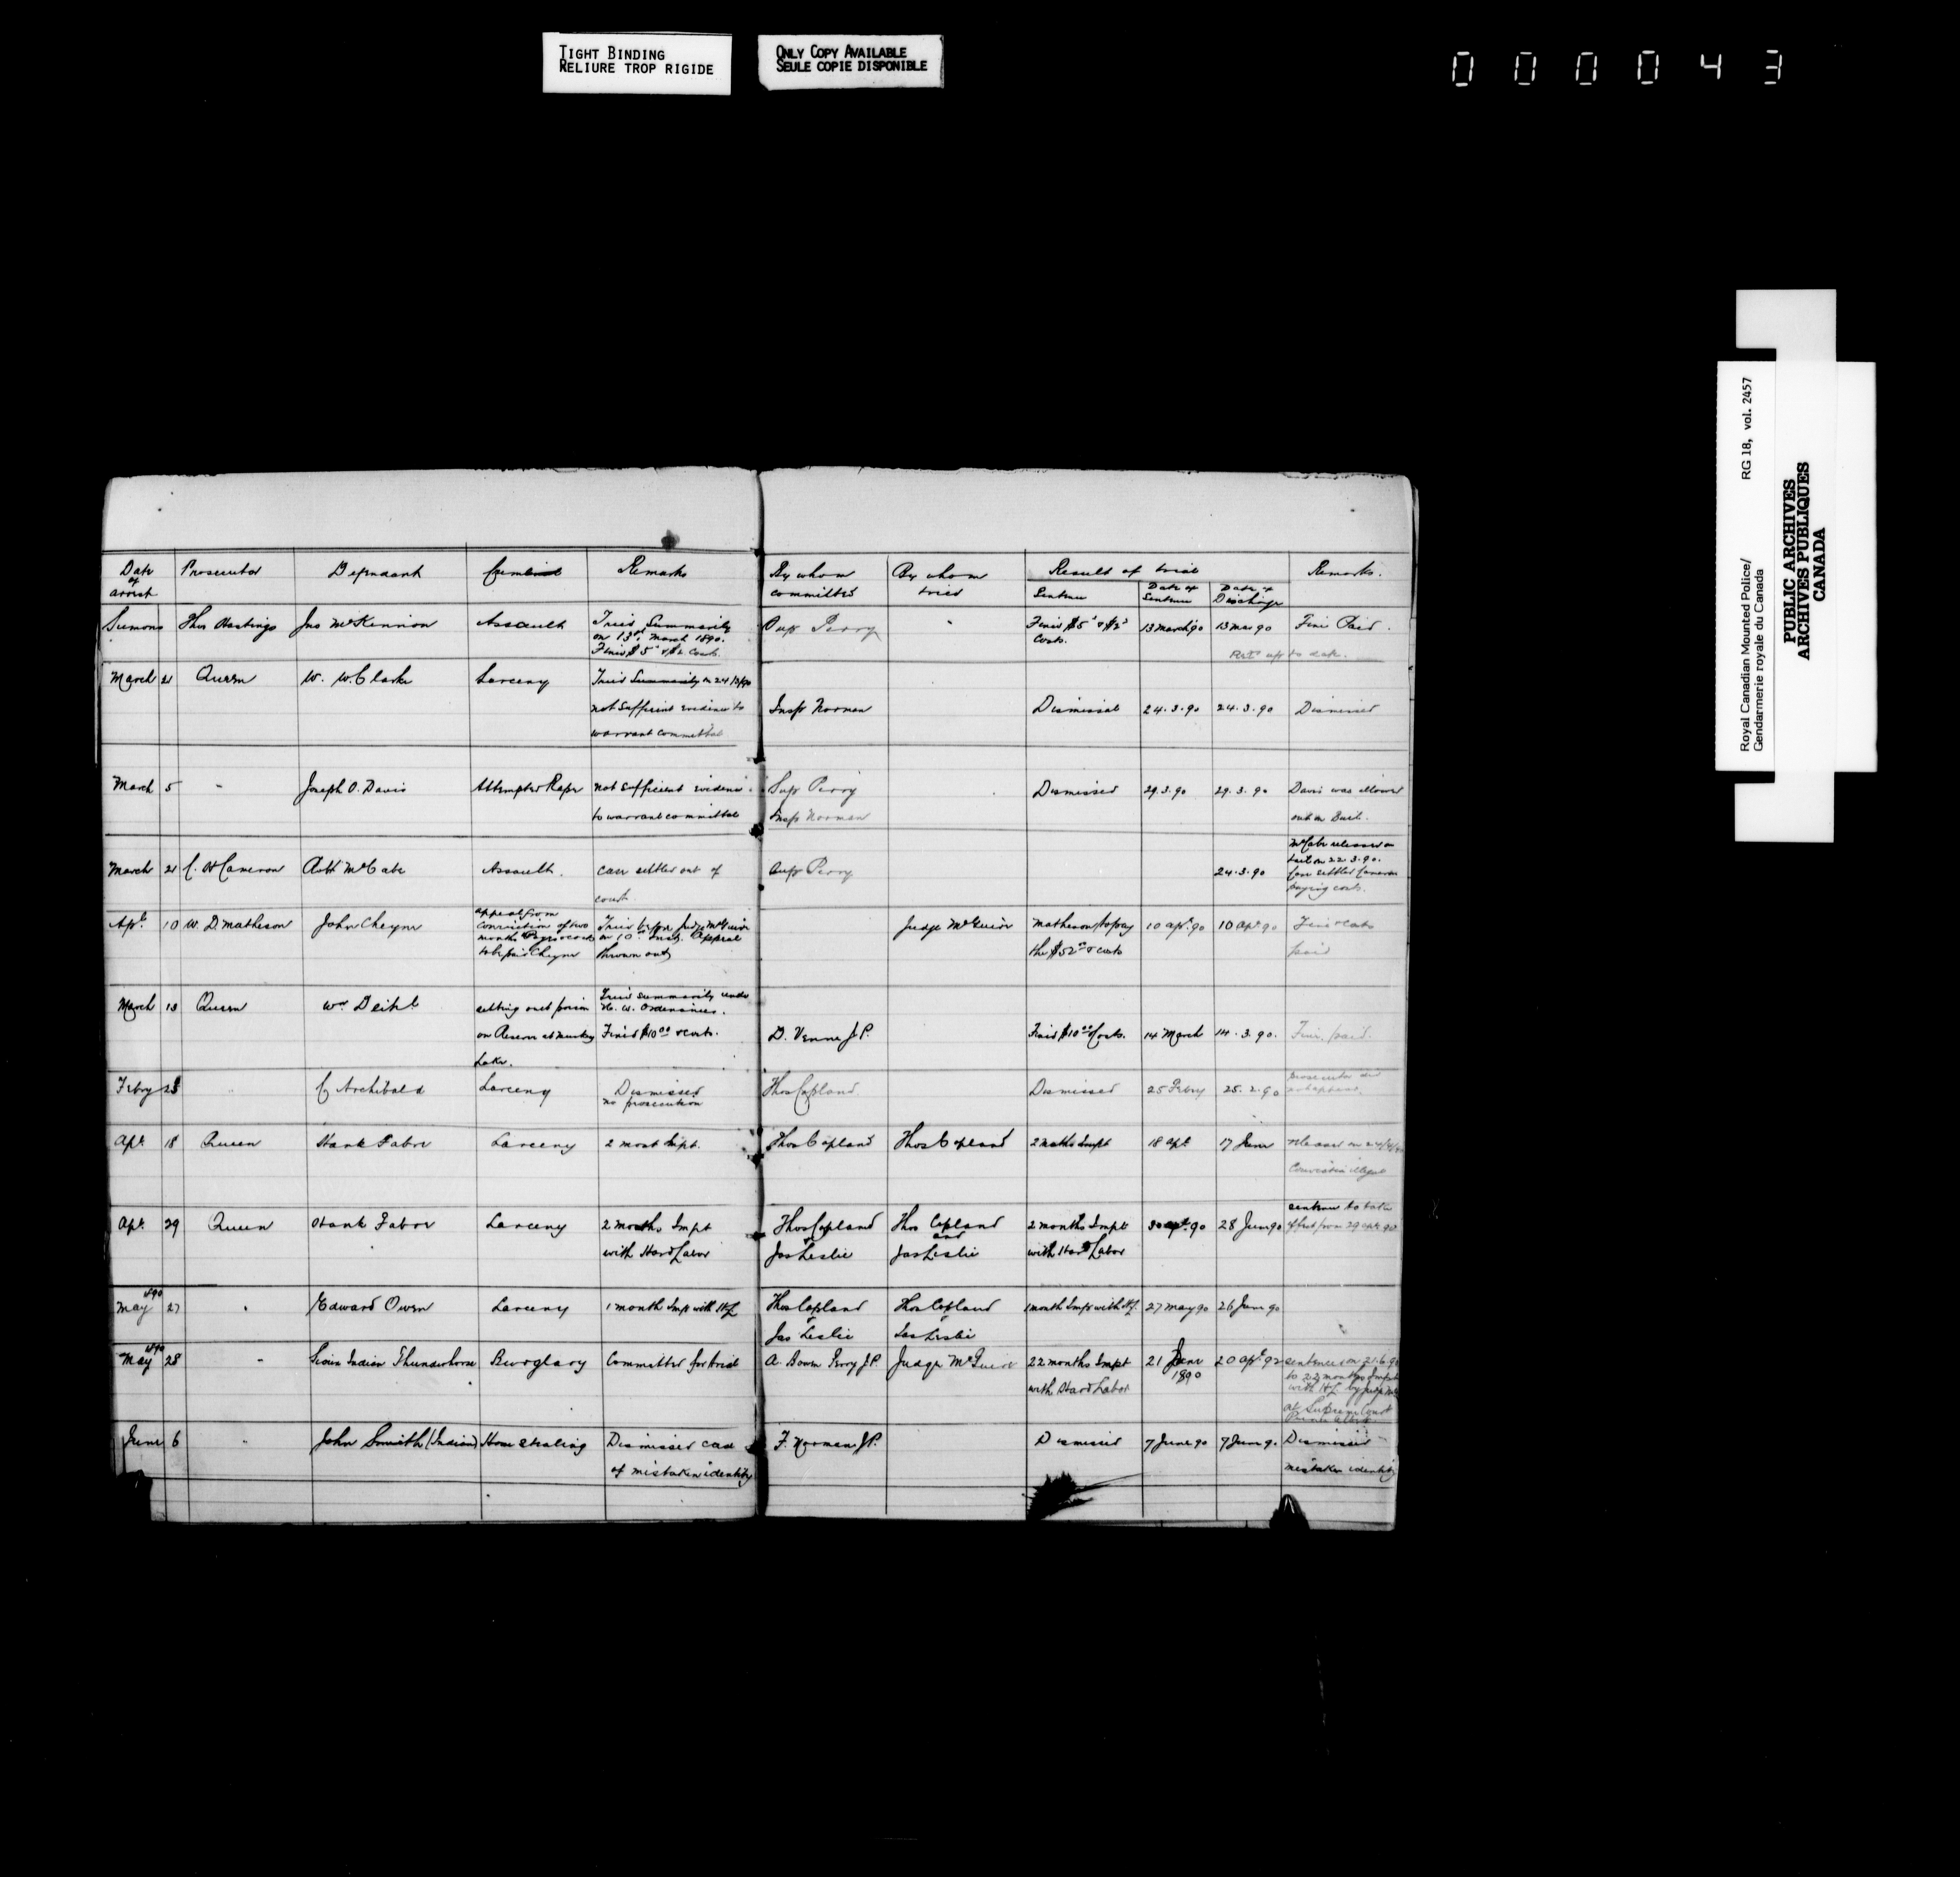 TIGHT BINDING
RELIURE TROP RIGIDE
ONLY COPY AVAILABLE
SEULE COPIE DISPONIBLE
000043
Royal Canadian Mounted Police/ RG 18, vol. 2457
Gendarmerie royale du Canada
PUBLIC ARCHIVES
ARCHIVES PUBLIQUES
CANADA
Date of arrest Prosecutor Defendant Remarks By whom committed By whom tried Result of trial Remarks.
Sentence Date of Sentence Date of Discharge
Sumons Thos Hastings Jno McKinnion Assault Tried Summarily Supt Perry Fined $5 & $2 13 March 90 13 Mar 90 Fine Paid.
on 13th March 1890. costs.
Fined $5 & $2 costs. up to date.
March 21 Queen W. W. Clarke Larceny Tried Summarily on 24
not sufficient evidence to Insp Norman Dismissal 24.3.90 24.3.90 Dismissed
warrant committal
March 5 " Joseph O. Davis Attempted Rape not sufficient evidence Supt Perry Dismissed 29.3.90 29.3.90 Davis was allowed
to warrant committal Insp Norman out on Bail.
March 21 C. H Cameron McCabe Assault. case settled out of Supt Perry 24.3.90 McCabe released on
court bail on 22.3.90.
Case settled Cameron
paying costs.
Apl 10 W. D. Matheson John Cheyne appeal from Tried before Judge McGuire Judge McGuire Matheson to pay 10 apl 90 10 apl 90 Fine & costs
conviction of two on 10th Inst. Appeal the $52 & costs paid
months
to be paid Cheyne thrown out
March 13 Queen Wm Tried summarily under
setting out poison N. W. Ordinances.
on Reserve at Muskeg Fined $10.00 & costs. D. Venne J.P. Fined $10.00 & costs. 14 March 14.3.90. Fine paid.
Lake.
Febry " C Archibald Larceny Dismissed Thos Copland Dismissed 25 Febry 25.2.90 prosecutor did
no prosecution not appear.
Apl 18 Queen Hank Fabor Larceny 2 mont Impt. Thos Copland Thos Copland 2 months Impt 18 apl 17 June released on
Conviction illegal
Apl. 29 Queen Hank Fabor Larceny 2 months Impt Thos Copland Thos Copland 2 months Impt 30 apl. 90 28 June 90 sentence to take
with Hard Labor & Jas Leslie and Jas Leslie with Hard Labor effect from 29 apl. 90
1890
May 27 " Edward Owen Larceny 1 month Imp with HL Thos Copland Thos Copland 1 month Imp with HL. 27 May 90 26 June 90
& Jas Leslie & Jas Leslie
1890
May 28 " Sioux Indian Thunderhorse Burglary Committed for trial A. Bowen Perry J.P. Judge McGuire 22 months Impt 21 June 1890 20 apl 92 sentenced on 21.6.90
with Hard Labor to 22 months Impt
with HL by Judge
at Supreme Court
Prince Albert
June 6 " John Smith (Indian) Horse stealing Dismissed case F. Norman J.P. Dismissed 7 June 90 7 June 90 Dismissed
of mistaken identity mistaken identity